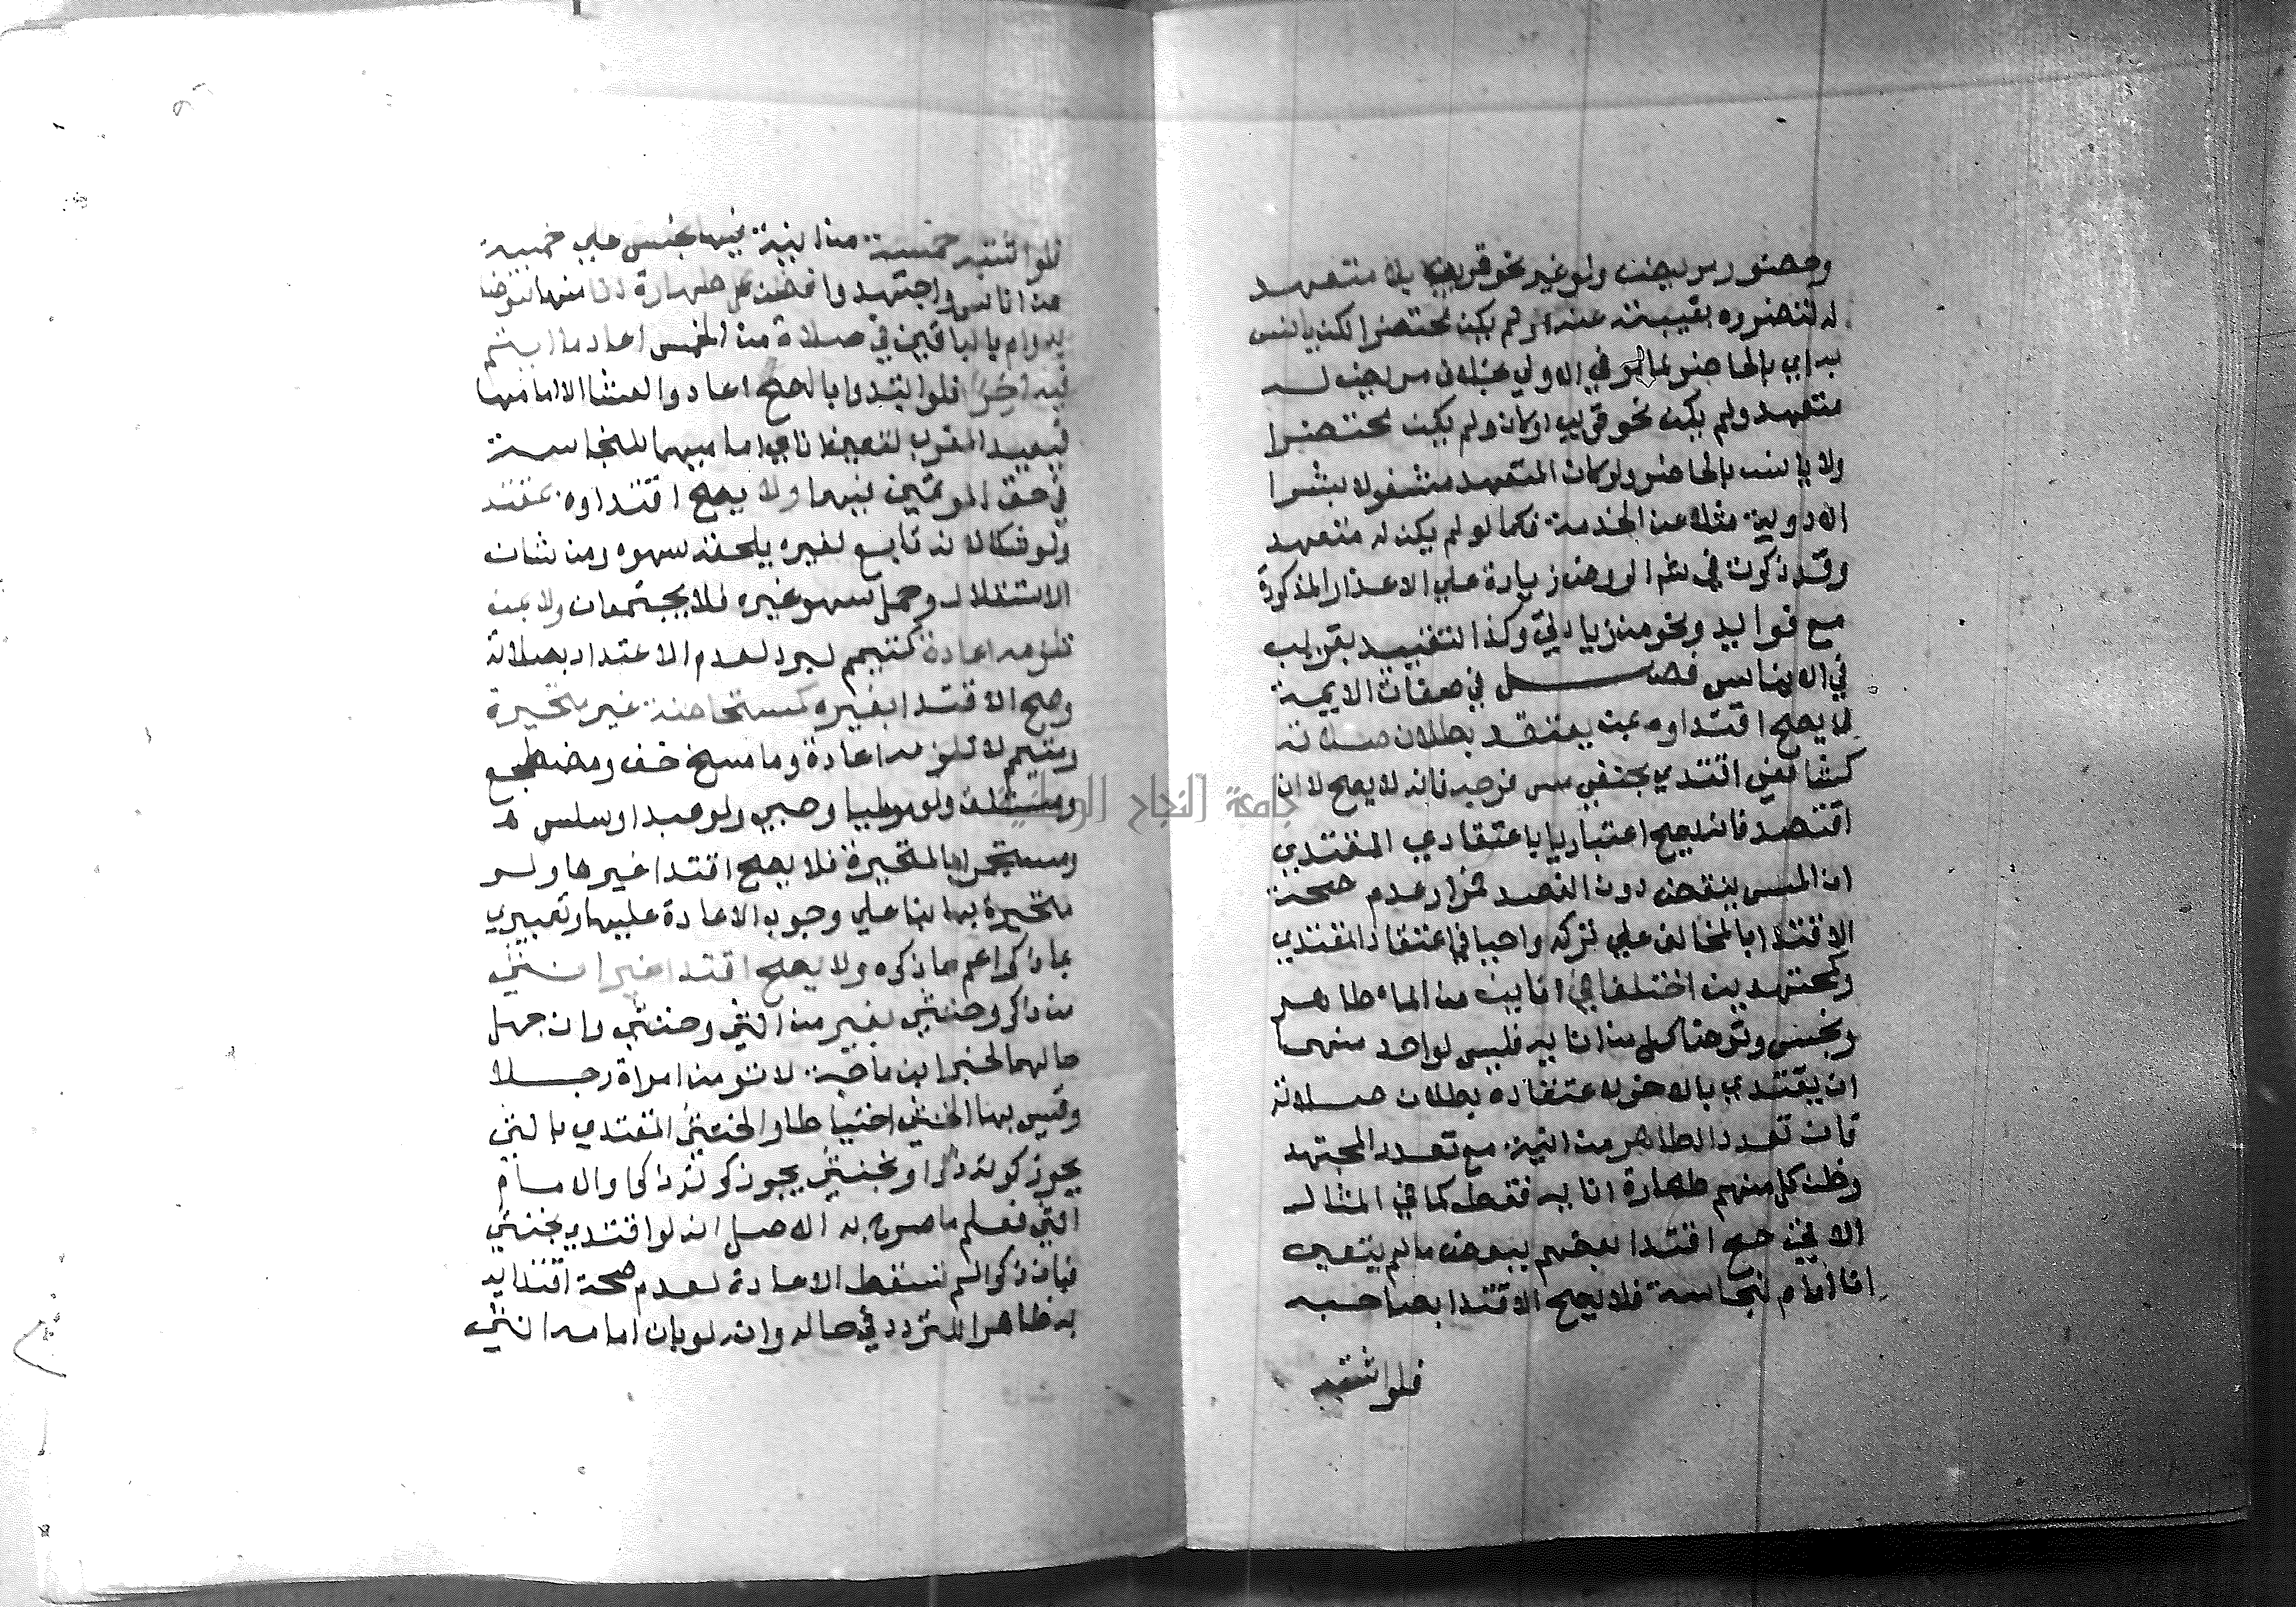 وحضور مريض ولو غير نحو قريب بلا متعهد
له لتضرره بغيبته عنه او لم يكن محتضرا لكن يانس
به اي بالحاضر لما مر في الاولي بخلاف مريض له
متعهد ولم يكن نحو قريب او كان ولم يكن محتضرا
ولا يانس بالحاضر ولو كان المتعهد مشغولا بشرا
الادوية مثلا عن الخدمة فكما لو لم يكن له متعهد
وقد ذكرت في شرح الروض زيادة علي الاعذار المذكورة
مع فوايد ونحو من زيادتي وكذا التقييد بقريب
في الايناس فصل في صفات الايمة
لا يصح اقتداوه بمن يعتقد بطلان صلاته
كشافعي اقتدي بحنفي مس فرجه فانه لا يصح لا ان
افتصد فانه يصح اعتبارا باعتقاد المقتدي
ان المس ينقض دون الفصد فمدار عدم صحة
الاقتدا بالمخالف علي تركه واجبا في اعتقاد المقتدي
وكمجتهدين اختلفا في اناين من الماء طاهر
ونجس وتوضا كل من انايه فليس لواحد منهما
ان يقتدي بالاخر لاعتقاده بطلان صلاته
فان تعدد الطاهر من انية مع تعدد المجتهد
وظن كل منهم طهارة انايه فقط كما في المثال
الاتي صح اقتدا بعضهم ببعض ما لم يتعين
انا امام لنجاسة فلا يصح الاقتدا بصاحبه
فلو اشتبه
فلو اشتبه خمسة من انية فيها نجس علي خمسة
من اناس واجتهدوا فظن كل طهارة انا منها فتوضا
به وام بالباقين في صلاة من الخمس اعاد ما ايتم
فيه اخرا فلو ابتدوا بالصبح اعادوا العشا الا امامها
فيعيد المغرب لتعين اناي اماميهما للنجاسة
في حق المؤتمين فيهما ولا يصح اقتداوه بمقتد
ولو شكا لانه تابع لغيره يلحقه سهوه ومن شان
الاستقلال وحمل سهو غيره فلا يجتمعان ولا بمن
تلزمه اعادة كمتيمم لبرد لعدم الاعتداد بصلاته
وصح الاقتدا بغيره كمستحاضة غير متحيرة
ومتيمم لا تلزمه اعادة وماسح خف ومضطجع
ومستلق ولو موميا وصبي ولو عبدا وسلس
ومستجمر اما المتحيرة فلا يصح اقتدا غيرها ولو
متحيرة بها بنا علي وجوب الاعادة عليها وتعبيري
بما ذكر اعم مما ذكره ولا يصح اقتدا غير انثي
من ذكر وخنثي بغير من انثي وخنثي وان جهل
حالهما لخبر ابن ماجة لا تؤمن امراة رجلا
وقيس بها الخنثي احتياطا والخنثي المقتدي بانثي
يجوز كونه ذكرا وبخنثي يجوز كونه ذكرا والامام
انثي فعلم ما صرح به الاصل انه لو اقتدي بخنثي
فبان ذكرا لم تسقط الاعادة لعدم صحة اقتدايه
به ظاهرا للتردد في حاله وانه لو بان امامه انثي
جامعة النجاح الوطنية